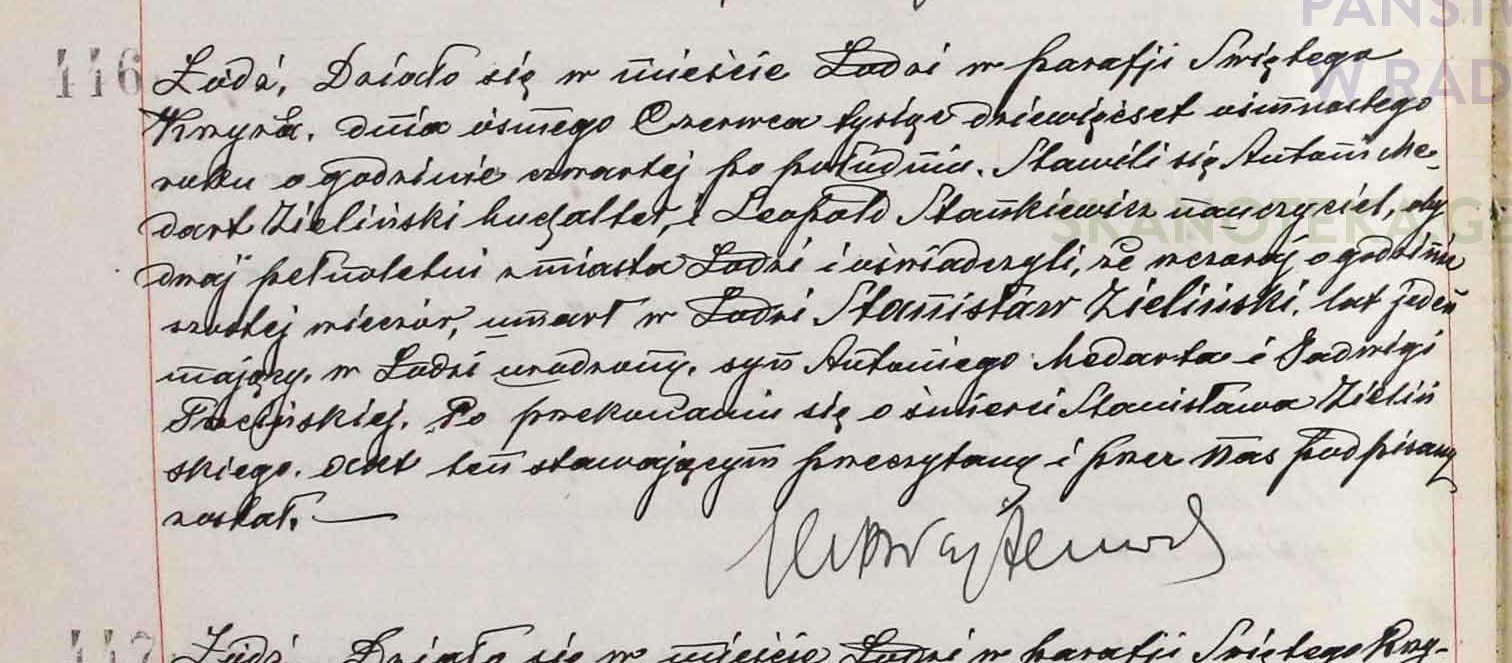 PAŃSTW
116 Łódź, Działo się w mieście Łodzi w parafji Świętego
W RAD
Krzyża, dnia ósmego Czerwca tysiąc dziewięćset ośmnastego
roku o godzinie czwartej po południu. Stawili się Antoni Me-
dart Zieliński buchalter, i Leopold Stankiewicz nauczyciel, oby
SKANOTEKA.G
dwaj pełnoletni z miasta Łodzi i oświadczyli, że wczoraj o godzinie
szóstej wieczór, umarł w Łodzi Stanisław Zieliński, lat jeden
mający, w Łodzi urodzony, syn Antoniego Medarta i Jadwigi
Po przekonaniu się o śmierci Stanisława Zieliń
skiego, akt ten stawającym przeczytany i przez nas podpisany
został. —
117 Łódź, Działo się w mieście Łodzi w parafji Świętego Krzy-